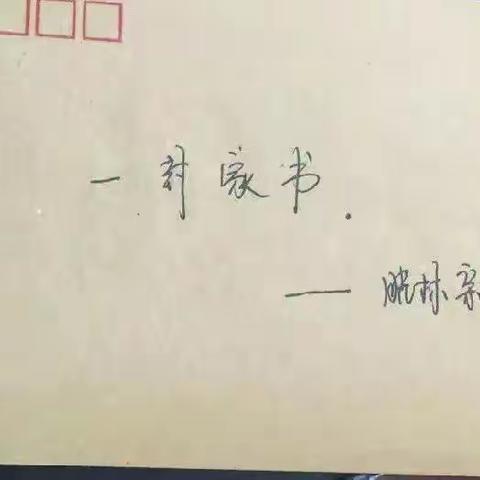 一封家书.
——晓林亲